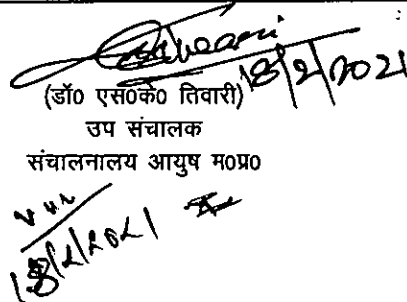 18/2/2021
(डॉ0 एस0के0 तिवारी)
उप संचालक
संचालनालय आयुष म0प्र0
18/2/2021